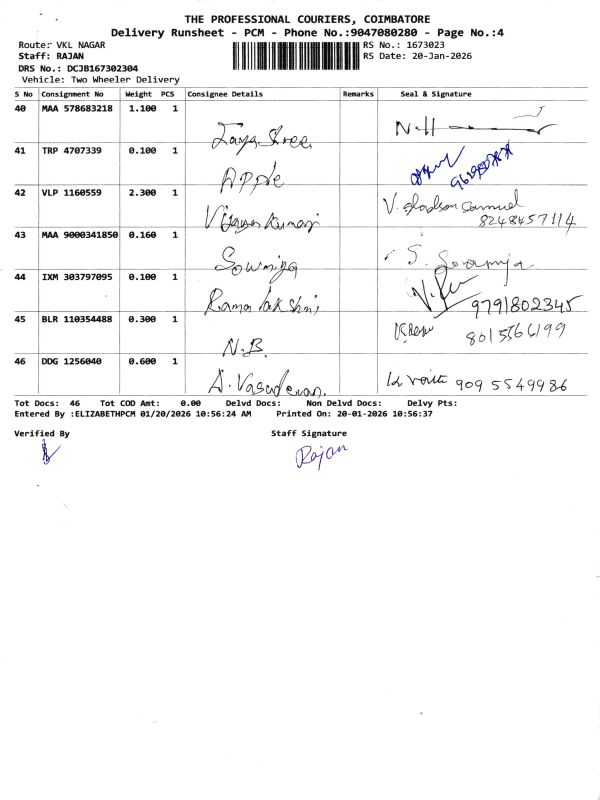 THE PROFESSIONAL COURIERS, COIMBATORE
Delivery Runsheet - PCM - Phone No.:9047080280 - Page No.:4
Route: VKL NAGAR RS No.: 1673023
Staff: RAJAN RS Date: 20-Jan-2026
DRS No.: DCJB167302304
Vehicle: Two Wheeler Delivery
S No Consignment No Weight PCS Consignee Details Remarks Seal & Signature
40 MAA 578683218 1.100 1
Jaya Shree
41 TRP 4707339 0.100 1
Apple
42 VLP 1160559 2.300 1 V. Gladson Samuel
Vijayan Kumar 8248457114
43 MAA 9000341850 0.160 1
Sowmiya S. Sowmiya
44 IXM 303797095 0.100 1
Rama lakshmi 9791802345
45 BLR 110354488 0.300 1
N.B. 8015566199
46 DDG 1256040 0.600 1
A. Vasudevan 9095549986
Tot Docs: 46 Tot COD Amt: 0.00 Delvd Docs: Non Delvd Docs: Delvy Pts:
Entered By :ELIZABETHPCM 01/20/2026 10:56:24 AM Printed On: 20-01-2026 10:56:37
Verified By Staff Signature
Rajan